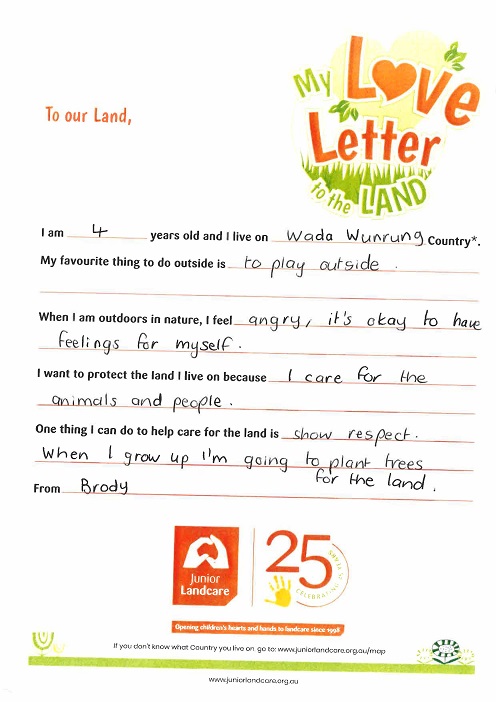 My Love
Letter
to the LAND
To our Land,
I am 4 years old and I live on Wada Wunrung Country*.
My favourite thing to do outside is to play outside.
When I am outdoors in nature, I feel angry, it's okay to have
feelings for myself.
I want to protect the land I live on because I care for the
animals and people.
One thing I can do to help care for the land is show respect.
When I grow up I'm going to plant trees
for the land.
From Brody
Junior
Landcare
25
CELEBRATING 25 YEARS
Opening children's hearts and hands to landcare since 1998
If you don't know what Country you live on go to: www.juniorlandcare.org.au/map
www.juniorlandcare.org.au